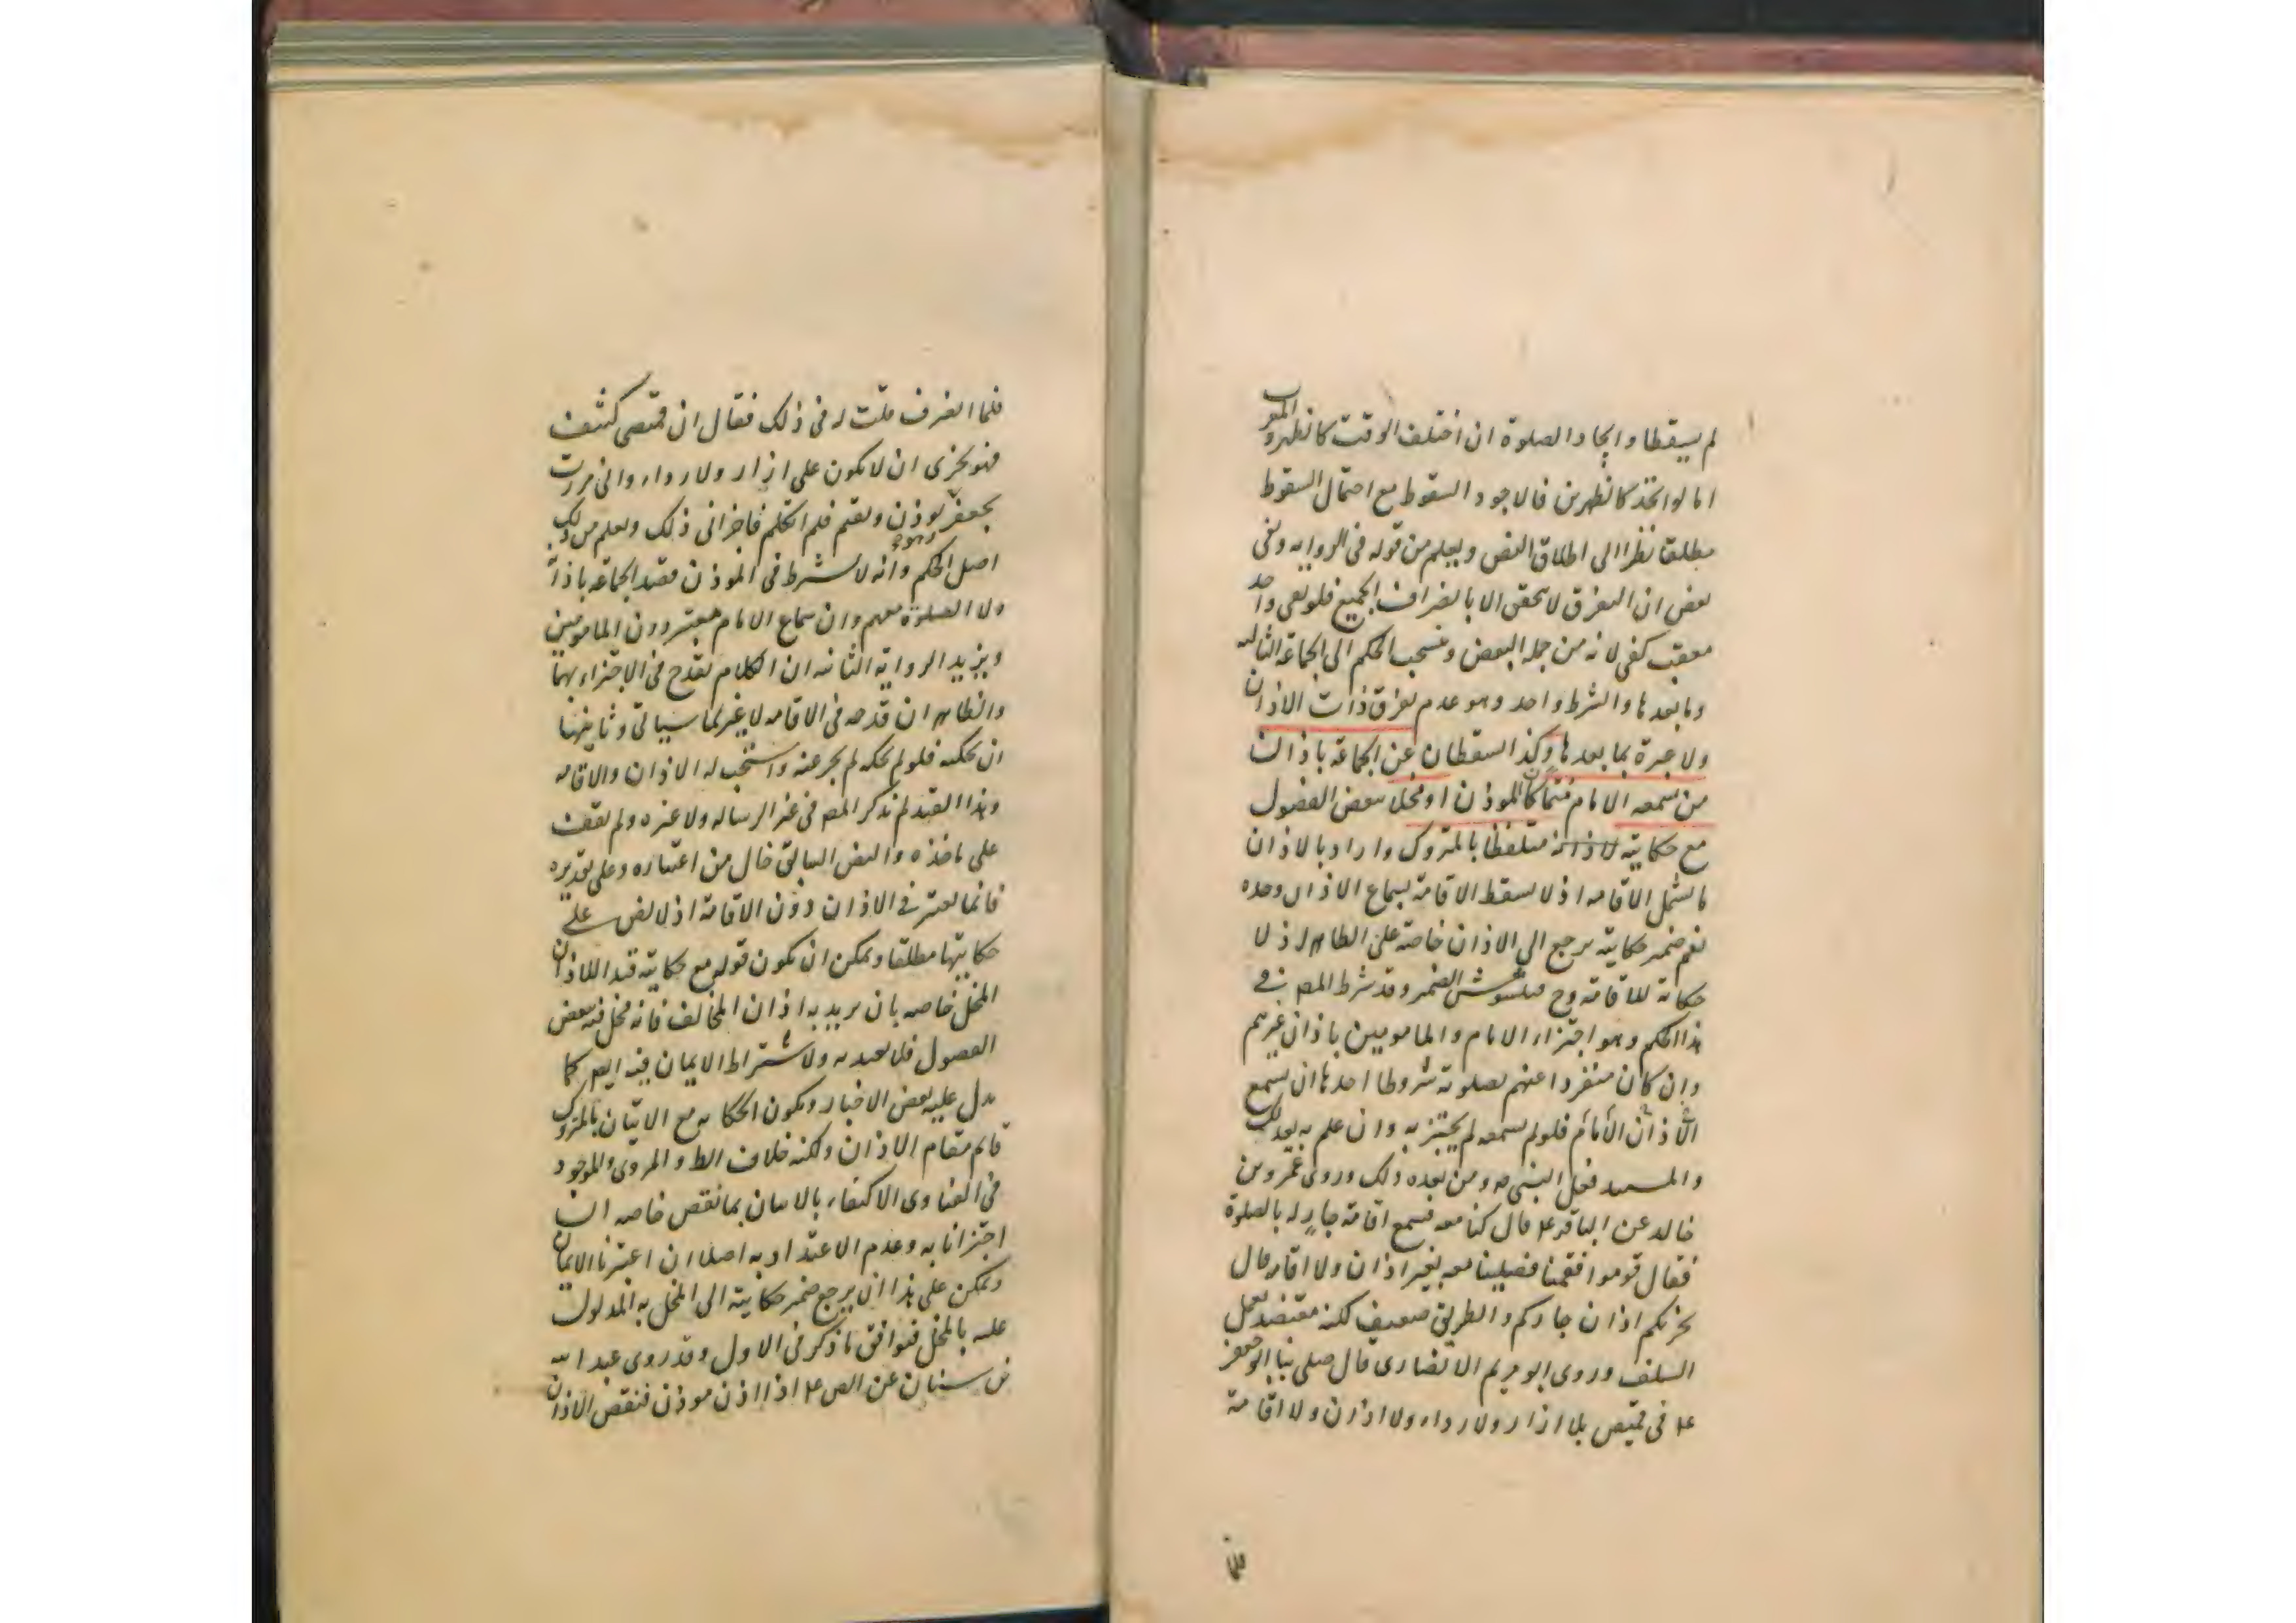 لم يسقطا واتحاد الصلوة ان اختلف الوقت كالظهر والمغرب
اما لو اتحد كالظهرين فالاجود السقوط مع احتمال السقوط
مطلقا نظرا الى اطلاق النص ويعلم من قوله فى الرواية وبقى
بعض ان التفرق لا يتحقق الا بانصراف الجميع فلو بقى واحد
معقب كفى لانه من جملة البعض وينسحب الحكم الى الجماعة الثالثة
وما بعدها والشرط واحد وهو عدم تفرق ذات الاذان
ولا عبرة بما بعدها وكذا يسقطان عن الجماعة باذان
من يسمعه الامام متما كان المؤذن او مخلا ببعض الفصول
مع حكايته متلفظا بالمتروك واراد بالاذان
ما يشمل الاقامه اذ لا يسقط الاقامة بسماع الاذان وحده
نعم ضمير حكايته يرجع الى الاذان خاصة على الظاهر اذ لا
حكاية للاقامة وح فيتشوش الضمير وقد شرط المص فى
هذا الحكم وهو اجتزاء الامام والمامومين باذان غيرهم
وان كان منفردا عنهم بصلوته شروطا احدها ان يسمع
الاذان الامام فلو لم يسمعه لم يجتز به وان علم به بعد ذلك
والمستند فعل النبى ص ومن بعده ذلك وروى عمرو بن
خالد عن الباقر ع قال كنا معه فسمع اقامة جار له بالصلوة
فقال قوموا فقمنا فصلينا معه بغير اذان ولا اقامة قال
يجزيكم اذان جاركم والطريق ضعيف لكنه معتضد بعمل
السلف وروى ابو مريم الانصارى قال صلى بنا ابو جعفر
ع فى قميص بلا ازار ولا رداء ولا اذان ولا اقامة
فلما
فلما انصرف قلت له فى ذلك فقال ان قميصى كثيف
فهو يجزى ان لا يكون على ازار ولا رداء وانى مررت
بجعفر يؤذن ويقيم فلم اتكلم فاجزانى ذلك ويعلم من ذلك
اصل الحكم وانه لا يشترط فى المؤذن قصد الجماعة باذانه
ولا الصلوة معهم وان سماع الامام معتبر دون المامومين
ويزيد الرواية الثانية ان الكلام يقدح فى الاجتزاء بهما
والظاهر ان قدحه فى الاقامه لا غير لما سياتى وثانيها
ان يحكيه فلو لم يحكه لم يجز عنه واستحب له الاذان والاقامه
وهذا القيد لم يذكر المص فى غير الرساله ولا غيره ولم نقف
على ماخذه والنص السابق خال من اعتباره وعلى تقديره
فانما يعتبر فى الاذان دون الاقامة اذ لا نص على
حكايتها مطلقا ويمكن ان يكون قوله مع حكايته قيد الاذان
المخل خاصه بان يريد به اذان المخالف فانه مخل فيه ببعض
الفصول فلا يعتد به ولاشتراط الايمان فيه ايض كما
يدل عليه بعض الاخبار ويكون الحكايه مع الاتيان بالمتروك
قائم مقام الاذان ولكنه خلاف الظ والمروى والموجود
فى الفتاوى الاكتفاء بالاتيان بما نقص خاصه ان
اجتزانا به وعدم الاعتداد به اصلا ان اعتبرنا الايمان
ويمكن على هذا ان يرجع ضمير حكايته الى المخل به المدلول
عليه بالمخل فيوافق ما ذكر فى الاول وقد روى عبد الله
بن سنان عن الص ع اذا اذن مؤذن فنقص الاذان